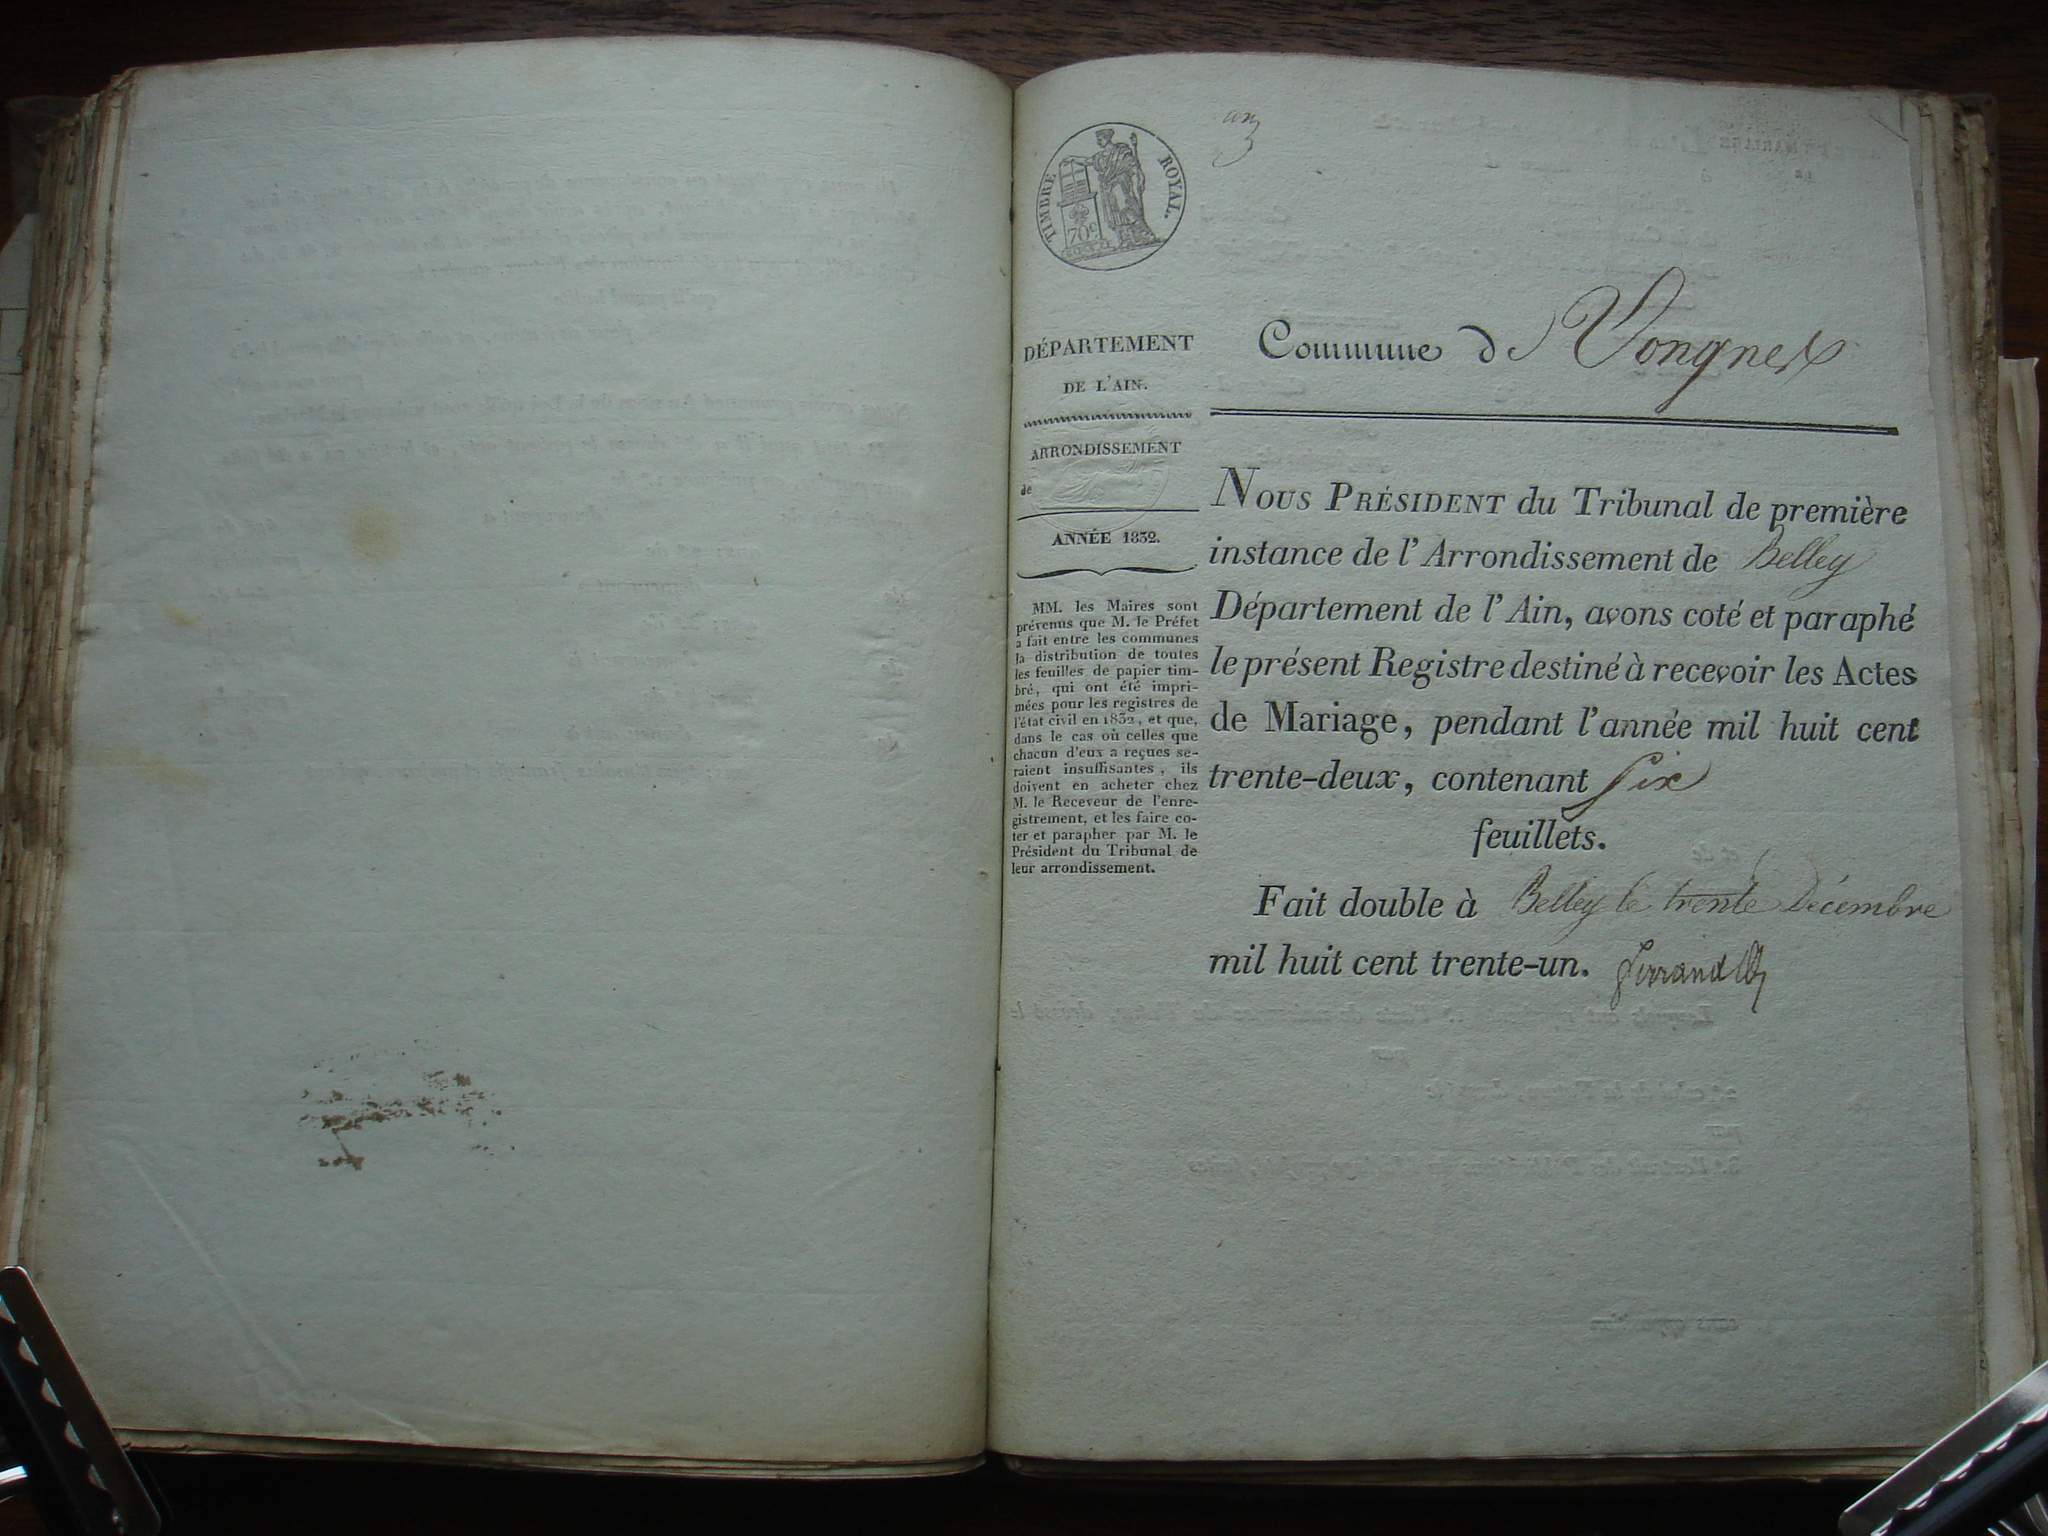 TIMBRE ROYAL.
70c
DÉPARTEMENT
DE L'AIN.
ARRONDISSEMENT
de
ANNÉE 1832.
MM. les Maires sont
prévenus que M. le Préfet
a fait entre les communes
la distribution de toutes
les feuilles de papier tim-
bré, qui ont été impri-
mées pour les registres de
l'état civil en 1832, et que,
dans le cas où celles que
chacun d'eux a reçues se-
raient insuffisantes, ils
doivent en acheter chez
M. le Receveur de l'enre-
gistrement, et les faire co-
ter et parapher par M. le
Président du Tribunal de
leur arrondissement.
Commune de Vongnes
NOUS PRÉSIDENT du Tribunal de première
instance de l'Arrondissement de Belley
Département de l'Ain, avons coté et paraphé
le présent Registre destiné à recevoir les Actes
de Mariage, pendant l'année mil huit cent
trente-deux, contenant six
feuillets.
Fait double à Belley le trente Décembre
mil huit cent trente-un.